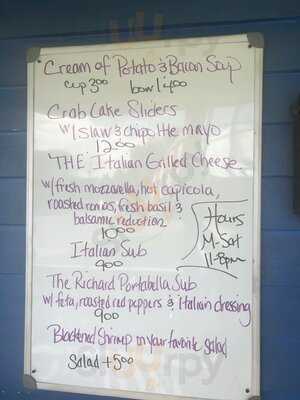 Cream of Potato & Bacon Soup
cup 3.00 bowl 4.00
Crab Cake Sliders
w/ slaw & chipotle mayo
12.00
"THE Italian Grilled Cheese
w/ fresh mozzarella, hot capicola,
roasted romas, fresh basil &
balsamic reduction
10.00
Hours
M-Sat
11-8pm
Italian Sub
9.00
The Richard Portabella Sub
w/ feta, roasted red peppers & Italian dressing
9.00
Blackened Shrimp on your favorite salad
Salad + 5.00